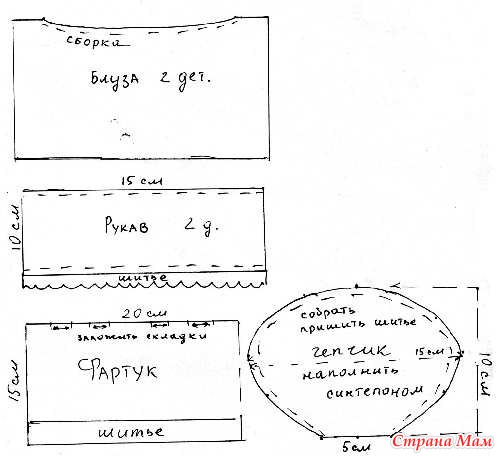 сборка
Блуза 2 дет.
15 см
10 см
Рукав 2 д.
шитье
20 см
заложить складки
15 см
Фартук
шитье
собрать
пришить шитье
чепчик
15 см
наполнить
синтепоном
10 см
5 см
Страна Мам